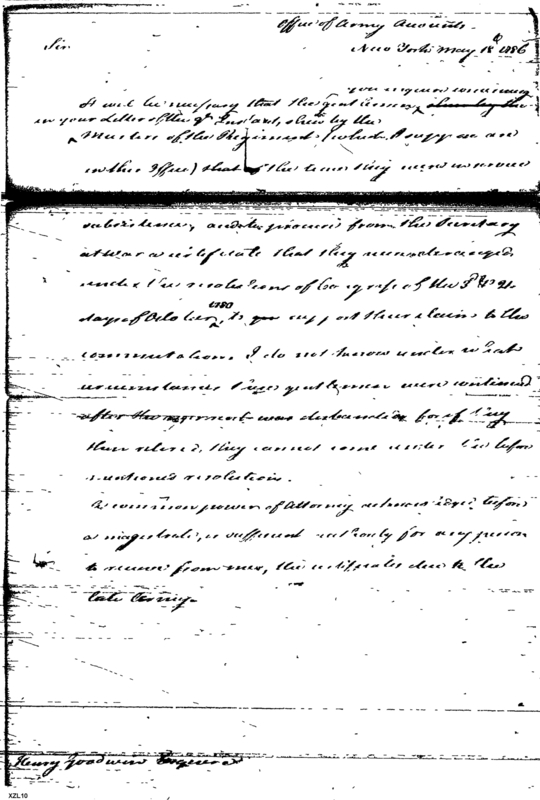 Office of Army Accounts
New York May 18th 1786
Sir
you inquire concerning
It will be necessary that the gentlemen, shew by the
in your Letter of the 9th Instant, shew by the
Musters of the Regiment (which I suppose are
in this Office) that the time they were
subsistence, and to procure from the Secretary
at War a certificate that they were deranged
under the resolutions of Congress of the 3d & 21
days of October, 1780 to support their claim to the
commutation. I do not know under what
circumstances these gentlemen were continued
after the regiment was disbanded for if they
then retired, they cannot come under the before
mentioned resolution.
A common power of Attorney acknowledged before
a magistrate, is sufficient authority for any person
to receive from me, the certificates due to the
late Army.
Henry Goodwin Esquire
XZL10